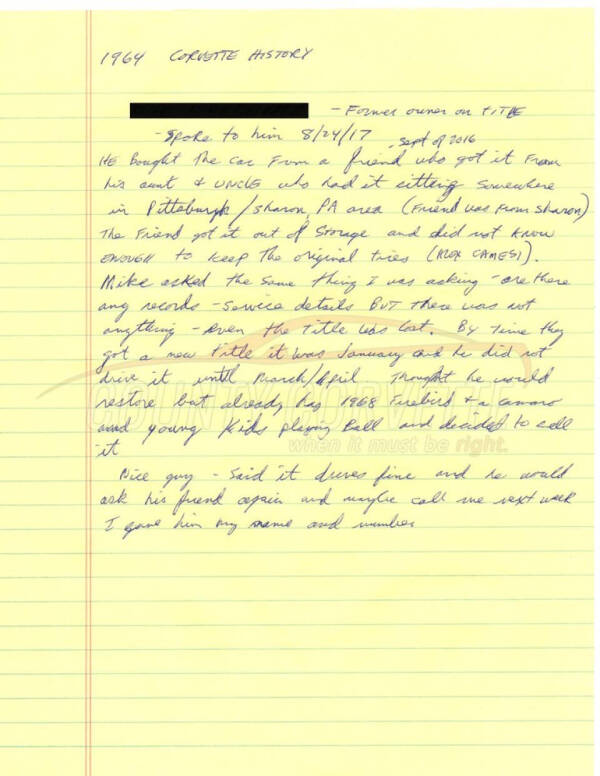 1964 CORVETTE HISTORY
- Former owner on TITLE
- Spoke to him 8/24/17
, Sept of 2016
HE Bought The car From a friend who got it From
his aunt & UNCLE who had it sitting somewhere
in Pittsburgh / Sharon, PA area (Friend was From Sharon)
The Friend got it out of Storage and did not know
ENOUGH to keep the original tires
Mike asked the same thing I was asking - are there
any records - Service details BUT there was not
anything - even the Title was lost. By time they
got a new title it was January and he did not
drive it until March/April Thought he would
restore but already has 1968 Firebird & a camaro
and young kids playing Ball and decided to sell
it
when it must be right.
Nice guy - said it drives fine and he would
ask his friend again and maybe call me next week
I gave him my name and number